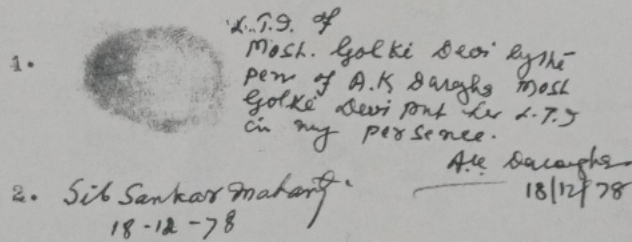 L.T.I. of
1. Most. Golki Devi by the
pen of A.K Darogha Most
Golki Devi put her L.T.I
in my persence.
A.K Darogha
18/12/78
2. Sib Sankar Mahanty.
18-12-78